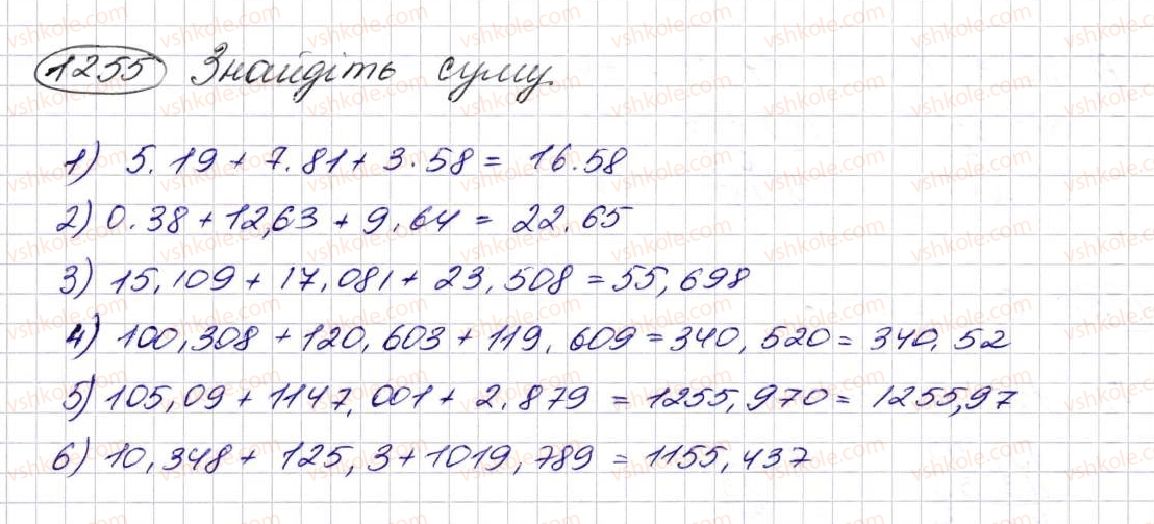 1255 Знайдіть суму.
1) 5.19 + 7.81 + 3.58 = 16.58
2) 0.38 + 12,63 + 9.64 = 22.65
3) 15,109 + 17,081 + 23,508 = 55,698
4) 100,308 + 120,603 + 119,609 = 340,520 = 340,52
5) 105,09 + 1147,001 + 2,879 = 1255,970 = 1255,97
6) 10,348 + 125,3 + 1019,789 = 1155,437
vshkole.com